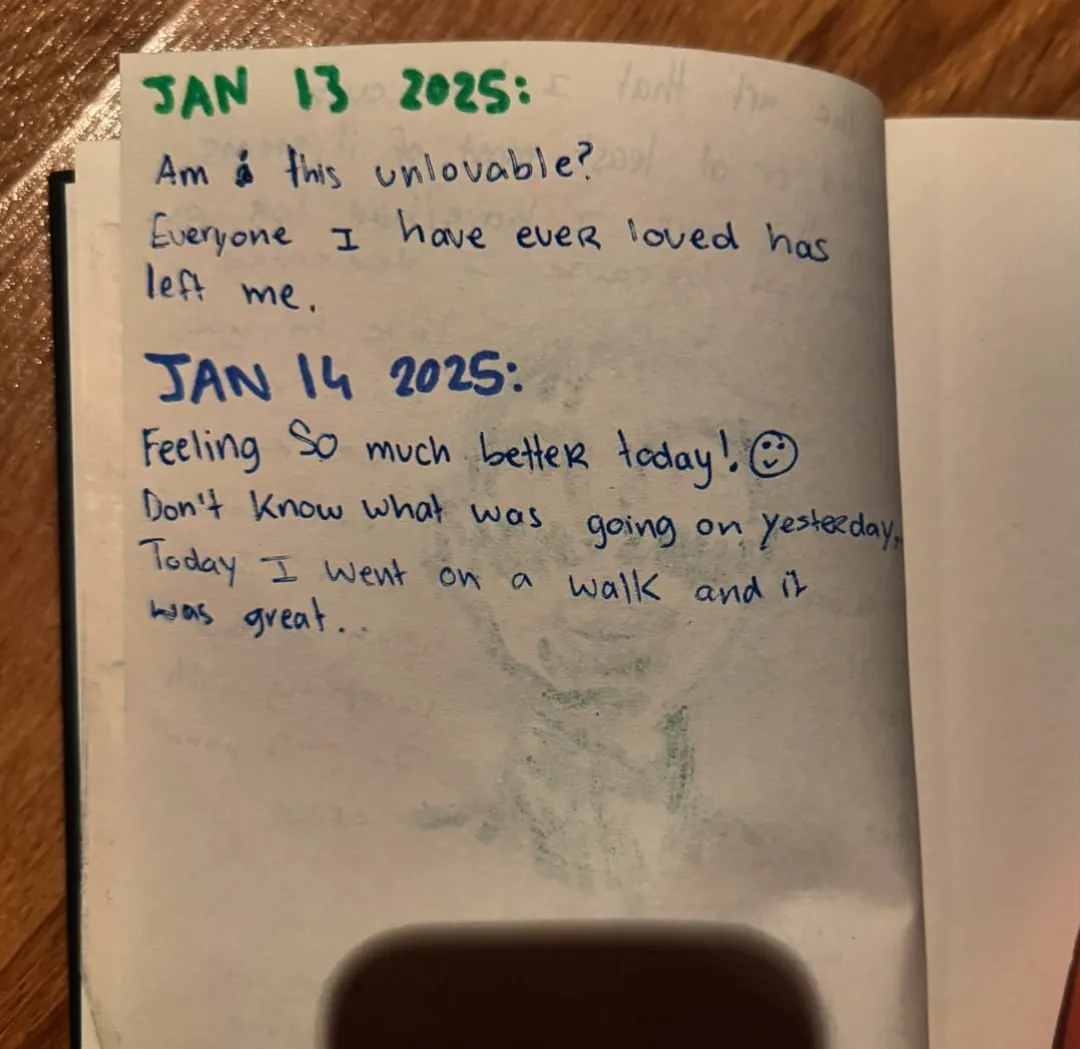 JAN 13 2025:
Am i this unlovable?
Everyone I have ever loved has
left me.
JAN 14 2025:
Feeling So much better today! ☺
Don't know what was going on yesterday,
Today I went on a walk and it
was great...